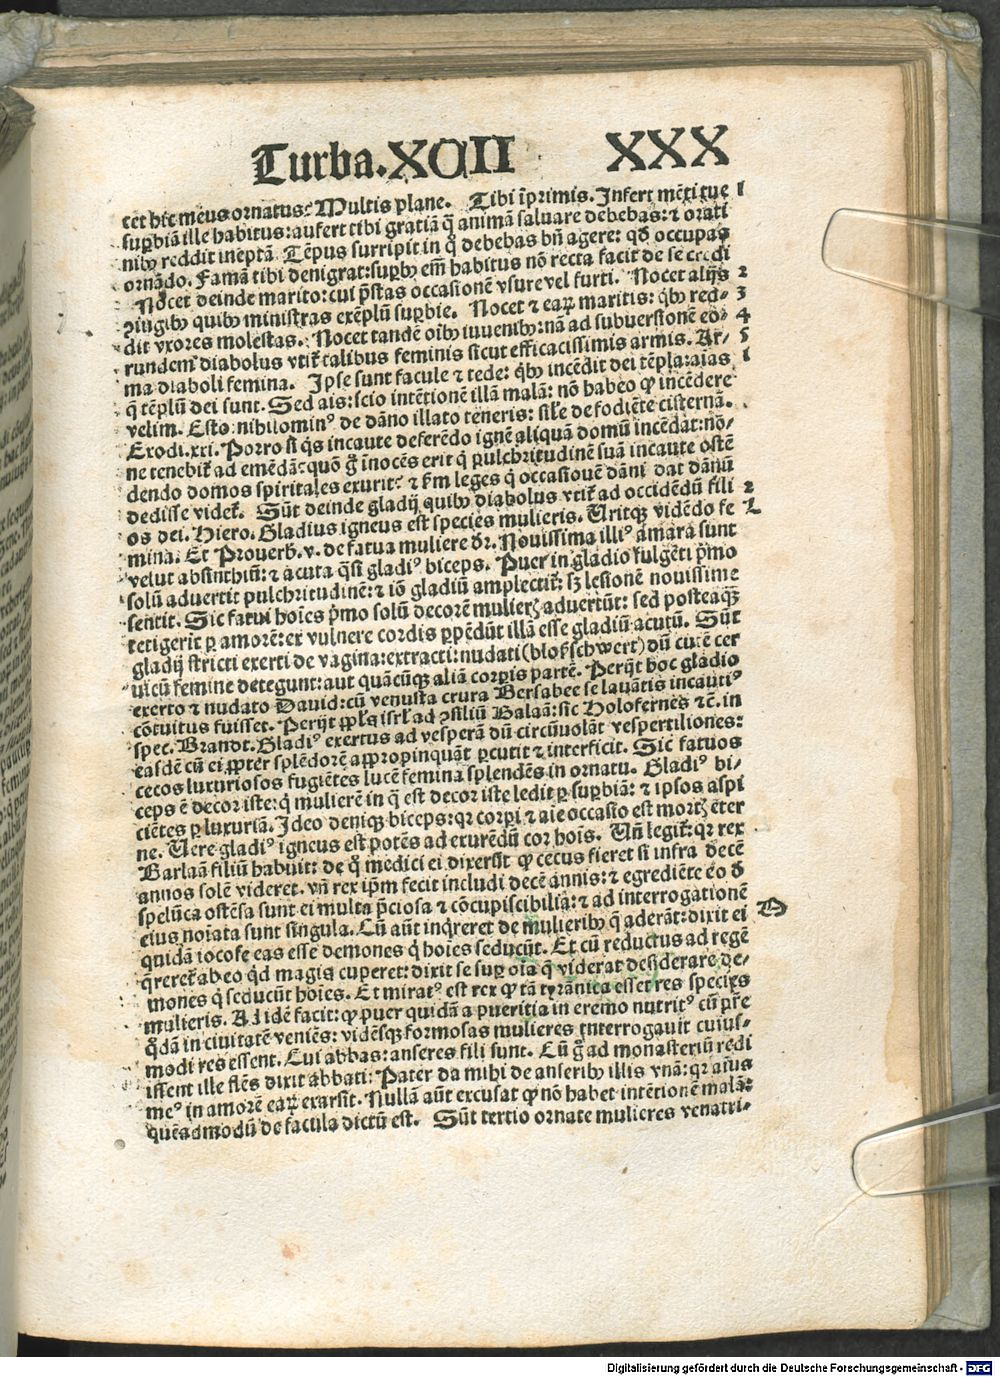 Turba.XCII XXX
cet hic meus ornatus? Multis plane. Tibi īprimis. Infert mēti tue 1
suꝑbiā ille habitus: aufert tibi gratiā q̄ animā saluare debebas: ⁊ orati
nibꝰ reddit ineptā. Tēpus surripit in q̄ debebas bn̄ agere: qđ occupas
ornādo. Famā tibi denigrat: suꝑbꝰ em̄ habitus nō recta facit de se credi
Nocet deinde marito: cui p̄stas occasionē vsure vel furti. Nocet alijs 2
ꝯiugibꝰ quibꝰ ministras exēplū suꝑbie. Nocet ⁊ eaꝝ maritis: qb̉ꝰ red- 3
dit vxores molestas. Nocet tandē oībꝰ iuuenibꝰ: nā ad subuersionē eo- 4
rundem diabolus vtit̄ talibus feminis sicut efficacissimis armis. Ar- 5
ma diaboli femina. Ipse sunt facule ⁊ tede: qb̉ꝰ incēdit dei tēpla: aīas 1
q̄ tēplū dei sunt. Sed ais: scio intētionē illā malā: nō habeo ꝙ incēdere
velim. Esto: nihilominꝰ de dāno illato teneris: sil̄e de fodiēte cisternā.
Exodi. xxi. Porro si q̉s incaute deferēdo ignē aliquā domū incēdat: nō-
ne tenebit̄ ad emēdā: quō g̊ īnocēs erit q̉ pulchritudinē suā incaute ostē
dendo domos spiritales exurit? ⁊ ẜm leges q̉ occasionē dāni dat dānū
dedisse videt̄. Sūt deinde gladij quibꝰ diabolus vtit̄ ad occidēdū fili 2
os dei. Hiero. Gladius igneus est species mulieris. Uritqꝫ vidēdo fe L
mina. Et Prouerb. v. de fatua muliere dr̄. Nouissima illiꝰ amara sunt
velut absinthiū: ⁊ acuta q̄si gladiꝰ biceps. Puer in gladio fulgēti p̉mo
solū aduertit pulchritudinē: ⁊ iō gladiū amplectit̄: sꝫ lesionē nouissime
sentit. Sic fatui hoīes p̉mo solū decorē mulierꝫ aduertūt: sed posteaqꝫ
tetigerit ꝑ amorē: ex vulnere cordis ꝑpēdūt illā esse gladiū acutū. Sūt
gladij stricti exerti de vagina: extracti: nudati (blokschwert) dū cutē cer
uicū femine detegunt: aut quācūqꝫ aliā corꝑis partē. Perijt hoc gladio
exerto ⁊ nudato Dauid: cū venusta crura Bersabee se lauātis incautiꝰ
cōtuitus fuisset. Perijt ppl̄s isrl̄ ad ꝯsiliū Balaā: sic Holofernes ⁊c̄. in
spec. Brandt. Gladiꝰ exertus ad vesperā dū circūuolāt vespertiliones:
easdē cū ei ꝓpter splēdorē appropinquāt ꝑcutit ⁊ interficit. Sic fatuos
cecos luxuriosos fugiētes lucē femina splendēs in ornatu. Gladiꝰ bi-
ceps ē decor iste: q̉ mulierē in q̄ est decor iste ledit ꝑ suꝑbiā: ⁊ ipsos aspi
ciētes ꝑ luxuriā. Ideo deniqꝫ biceps: qꝛ corꝑi ⁊ aīe occasio est mortꝫ eter
ne. Uere gladiꝰ igneus est potēs ad exurēdū cor hoīs. Un̄ legit̄: qꝛ rex
Barlaā filiū habuit: de q̊ medici ei dixerūt ꝙ cecus fieret si infra decē
annos solē videret. vn̄ rex ip̄m fecit includi decē annis: ⁊ egrediēte eo đ
spelūca ostēsa sunt ei multa p̄ciosa ⁊ cōcupiscibilia: ⁊ ad interrogationē
eius noīata sunt singula. Cū aūt inq̉reret de mulieribꝰ q̄ aderāt: dixit ei O
quidā iocose eas esse demones q̉ hoīes seducūt. Et cū reductus ad regē
q̄reret̄ ab eo q̉d magis cuperet: dixit se suꝑ oīa q̄ viderat desiderare de-
mones q̉ seducūt hoīes. Et miratꝰ est rex ꝙ tā tyrānica esset res species
mulieris. Ad idē facit: ꝙ puer quidā a pueritia in eremo nutritꝰ cū pr̄e
q̊dā in ciuitatē veniēs: vidēsqꝫ formosas mulieres interrogauit cuius-
modi res essent. Cui abbas: anseres fili sunt. Cū g̊ ad monasteriū redi
issent ille flēs dixit abbati: Pater da mihi de anseribꝰ illis vnā: qꝛ aīus
meꝰ in amorē eaꝝ exarsit. Nullā aūt excusat ꝙ nō habet intētionē malā:
quēadmodū de facula dictū est. Sūt tertio ornate mulieres venatri-
Digitalisierung gefördert durch die Deutsche Forschungsgemeinschaft - DFG